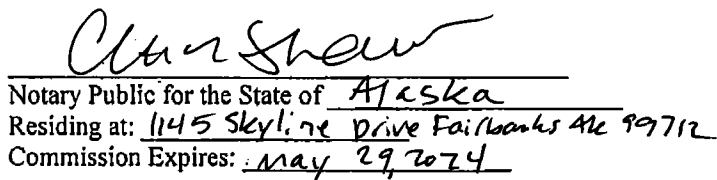 Notary Public for the State of Alaska
Residing at: 1145 Skyline Drive Fairbanks AK 99712
Commission Expires: May 29, 2024